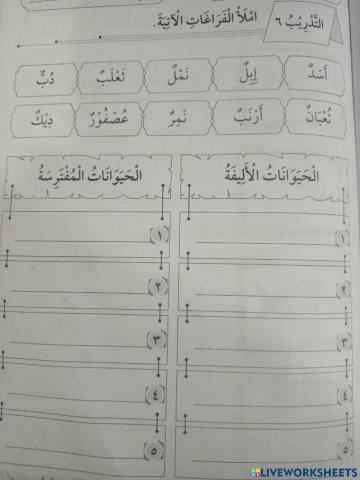 التَّدْرِيْبُ ٦
امْلَأْ الْفَرَاغَاتِ الْآتِيَةَ.
أَسَدٌ إِبِلٌ نَمْلٌ ثَعْلَبٌ دُبٌّ
ثُعْبَانٌ أَرْنَبٌ نَمِرٌ عُصْفُوْرٌ دِيْكٌ
الْحَيَوَانَاتُ الْأَلِيفَةُ الْحَيَوَانَاتُ الْمُفْتَرِسَةُ
١ ١
٢ ٢
٣ ٣
٤ ٤
٥ ٥
LIVEWORKSHEETS